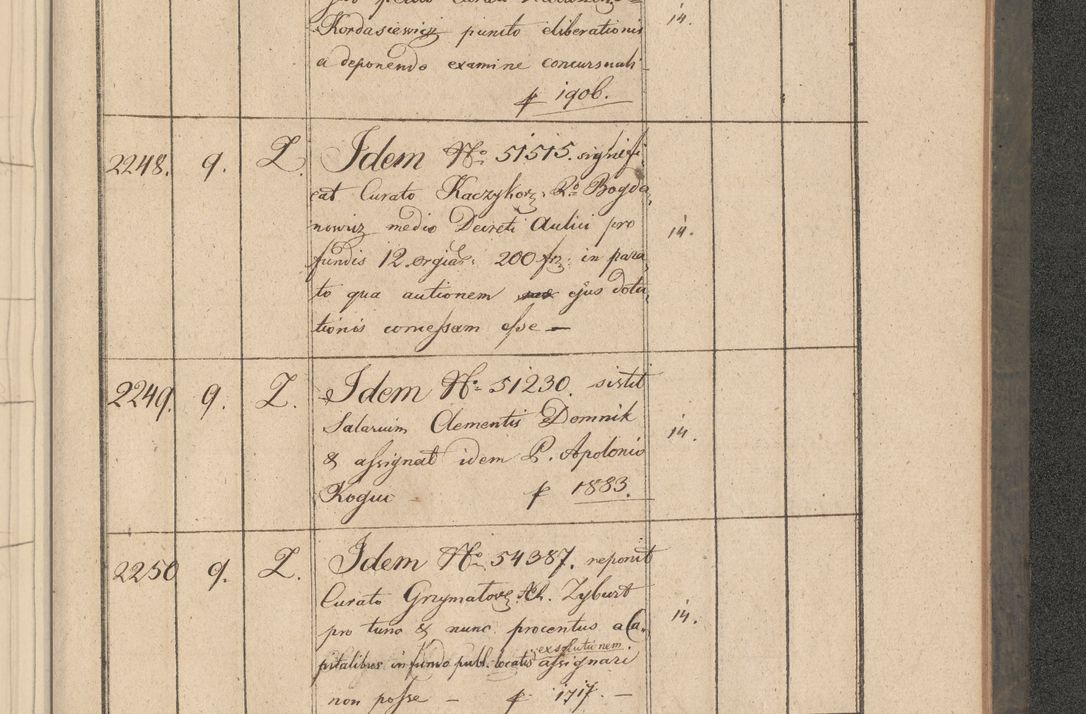 Kordasiewicz puncto eliberationis
14.
a deponendo examine concursuali
f 1906.
2248. 9. Z. Idem No 51515. signifi
cat Curato Kaczykow. Ro Bogda,
nowicz medio Decreti Aulici pro
14.
fundis 12 orgiar: 200 fr: in para,
to qua autionem ejus dota,
tionis concessam esse —
2249. 9. Z. Idem No 51230. sistit
Salarium Clementis Domnik
14.
& assignat idem P. Apolonio
Rogui f 1883.
2250 9. Z. Idem No 54387. reponit
Curato Grzymatow. Zyburt
pro tunc & nunc procentus a Ca,
14.
exsolutionem.
pitalibus in fundo publ. locatis assignari
non posse — f 1717. —